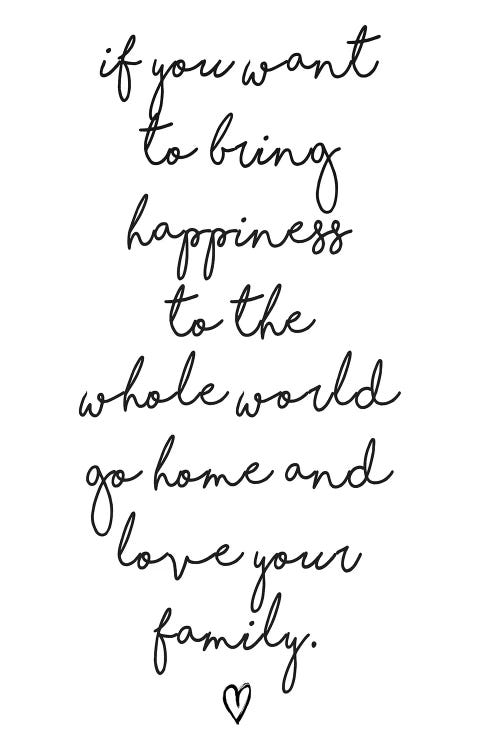 if you want
to bring
happiness
to the
whole world
go home and
love your
family.